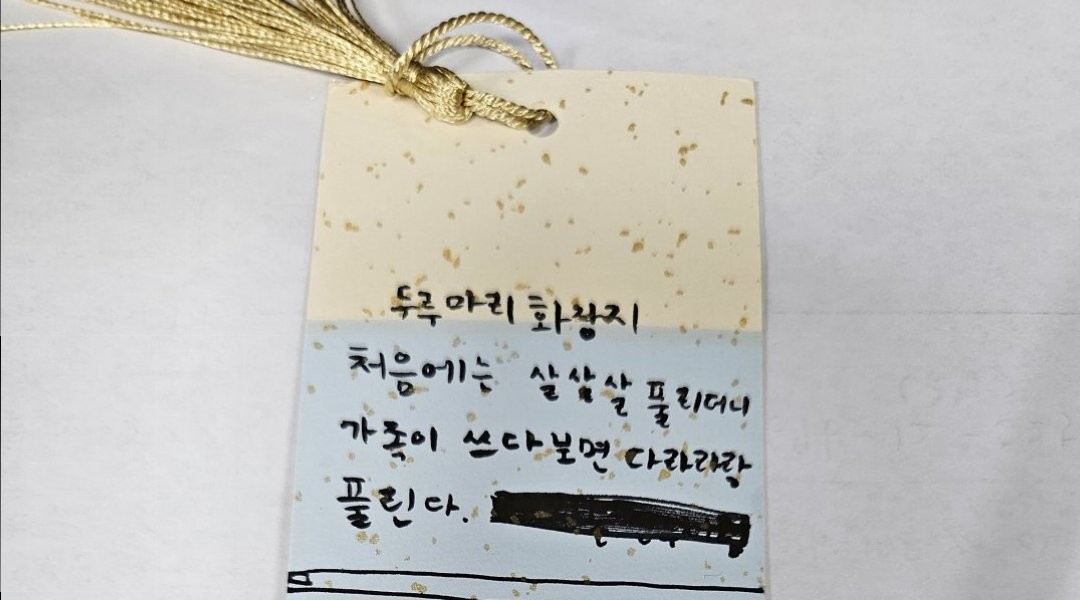 두루마리 화장지
처음에는 살살살 풀리더니
가족이 쓰다보면 다라라락
풀린다.